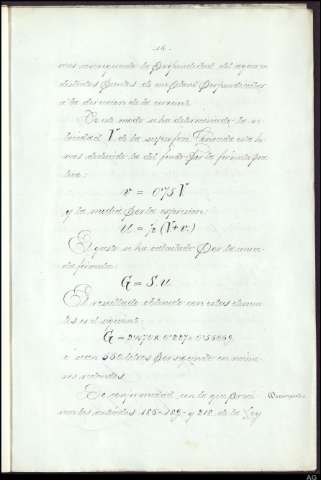 -16-
mas averiguando la profundidad del agua en
distintos puntos de un plano perpendicular
a la direccion de la corriente.
De este modo se ha determinado la ve
locidad V de la superficie. Tenida esta he
mos deducido la del fondo por la fórmula
v = 0'75 V
y la media por la espresion:
u = ½ (V+v.)
El gasto se ha calculado por la
fórmula:
G = S. u
El resultado obtenido con estos elemen
tos es el siguiente:
G =
ó sean 560 litros por segundo en núme
ros redondos.
De conformidad con lo que previe
nen los artículos 186-189- y 218 de la Ley